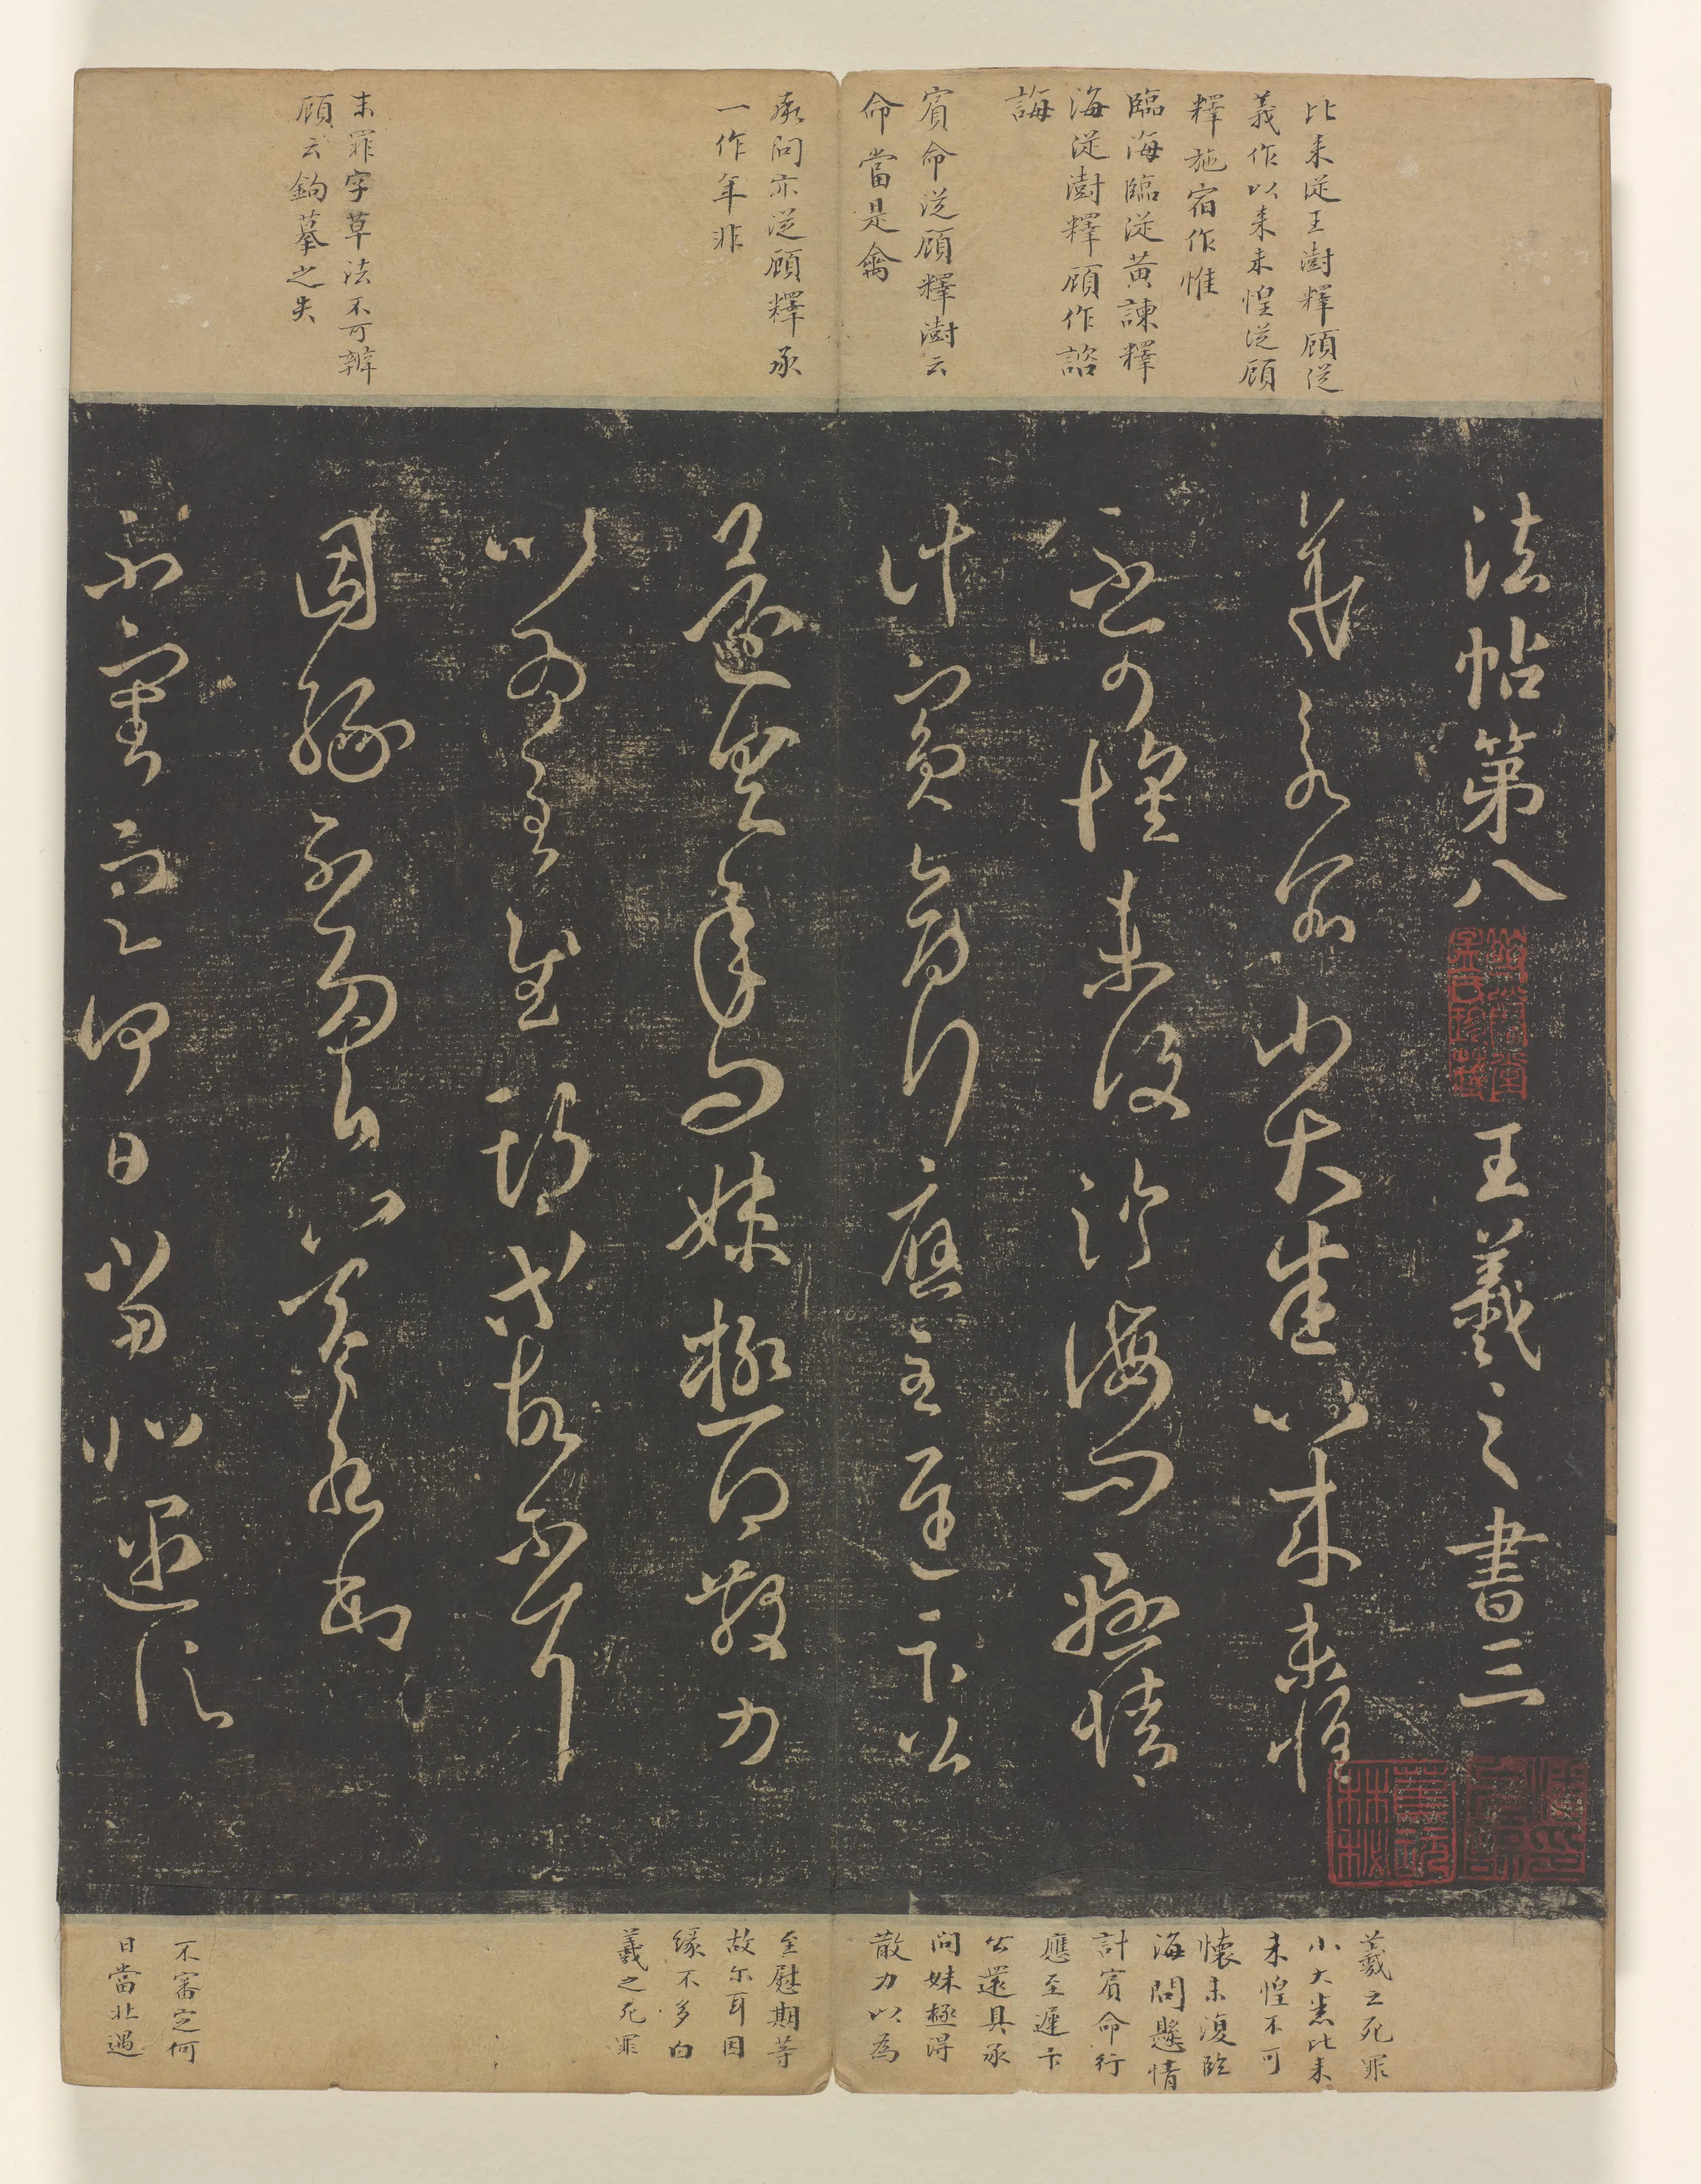 比来從王澍釋顧從
義作以来未惶從顧
釋施宿作惟
臨海臨從黄諫釋
海從澍釋顧作諮
誨
賓命從顧釋澍云
命當是禽
承問亦從顧釋承
一作年非
末罪字草法不可辨
顧云鈎摹之失
法帖第八 王羲之書三
羲之死罪小大悉比来未惶
不可懷未復臨海問懸情
計賓命行應至遲卞公
還具承問妹極得散力
以為至慰期等故尔耳
因緣不多白羲之死罪
不審定何日當北遇信
羲之死罪
小大悉比来
未惶不可
懷未復臨
海問懸情
計賓命行
應至遲卞
公還具承
問妹極得
散力以為
至慰期等
故尔耳因
緣不多白
羲之死罪
不審定何
日當北遇